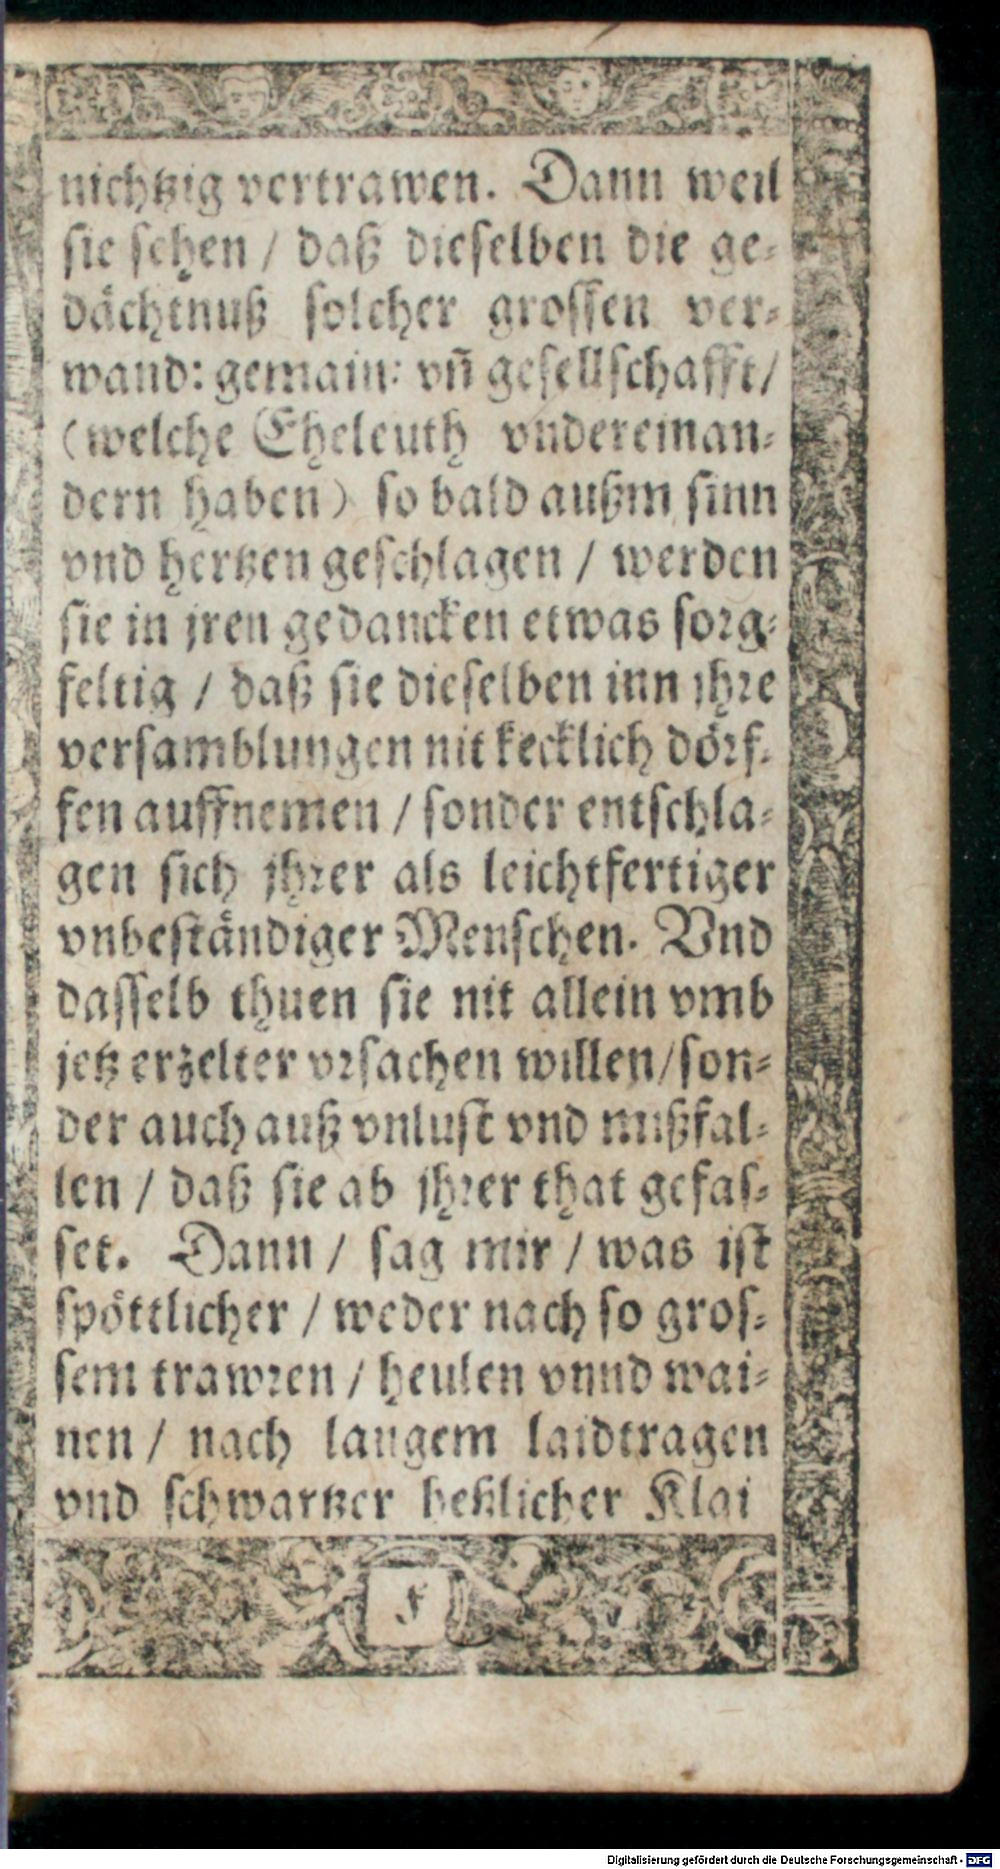 nichtzig vertrawen. Dann weil
sie sehen / daß dieselben die ge-
dächtnuß solcher grossen ver-
wand: gemain: vñ gesellschafft/
(welche Eheleuth vndereinan-
dern haben) so bald außm sinn
vnd hertzen geschlagen / werden
sie in jren gedancken etwas sorg-
feltig / daß sie dieselben inn ihre
versamblungen nit kecklich dörf-
fen auffnemen / sonder entschla-
gen sich jhrer als leichtfertiger
vnbeständiger Menschen. Vnd
dasselb thuen sie nit allein vmb
jetz erzelter vrsachen willen/son-
der auch auß vnlust vnd mißfal-
len / daß sie ab jhrer that gefas-
set. Dann / sag mir / was ist
spöttlicher / weder nach so gros-
sem trawren / heulen vnnd wai-
nen / nach langem laidtragen
vnd schwartzer heßlicher Klai
F
Digitalisierung gefördert durch die Deutsche Forschungsgemeinschaft - DFG